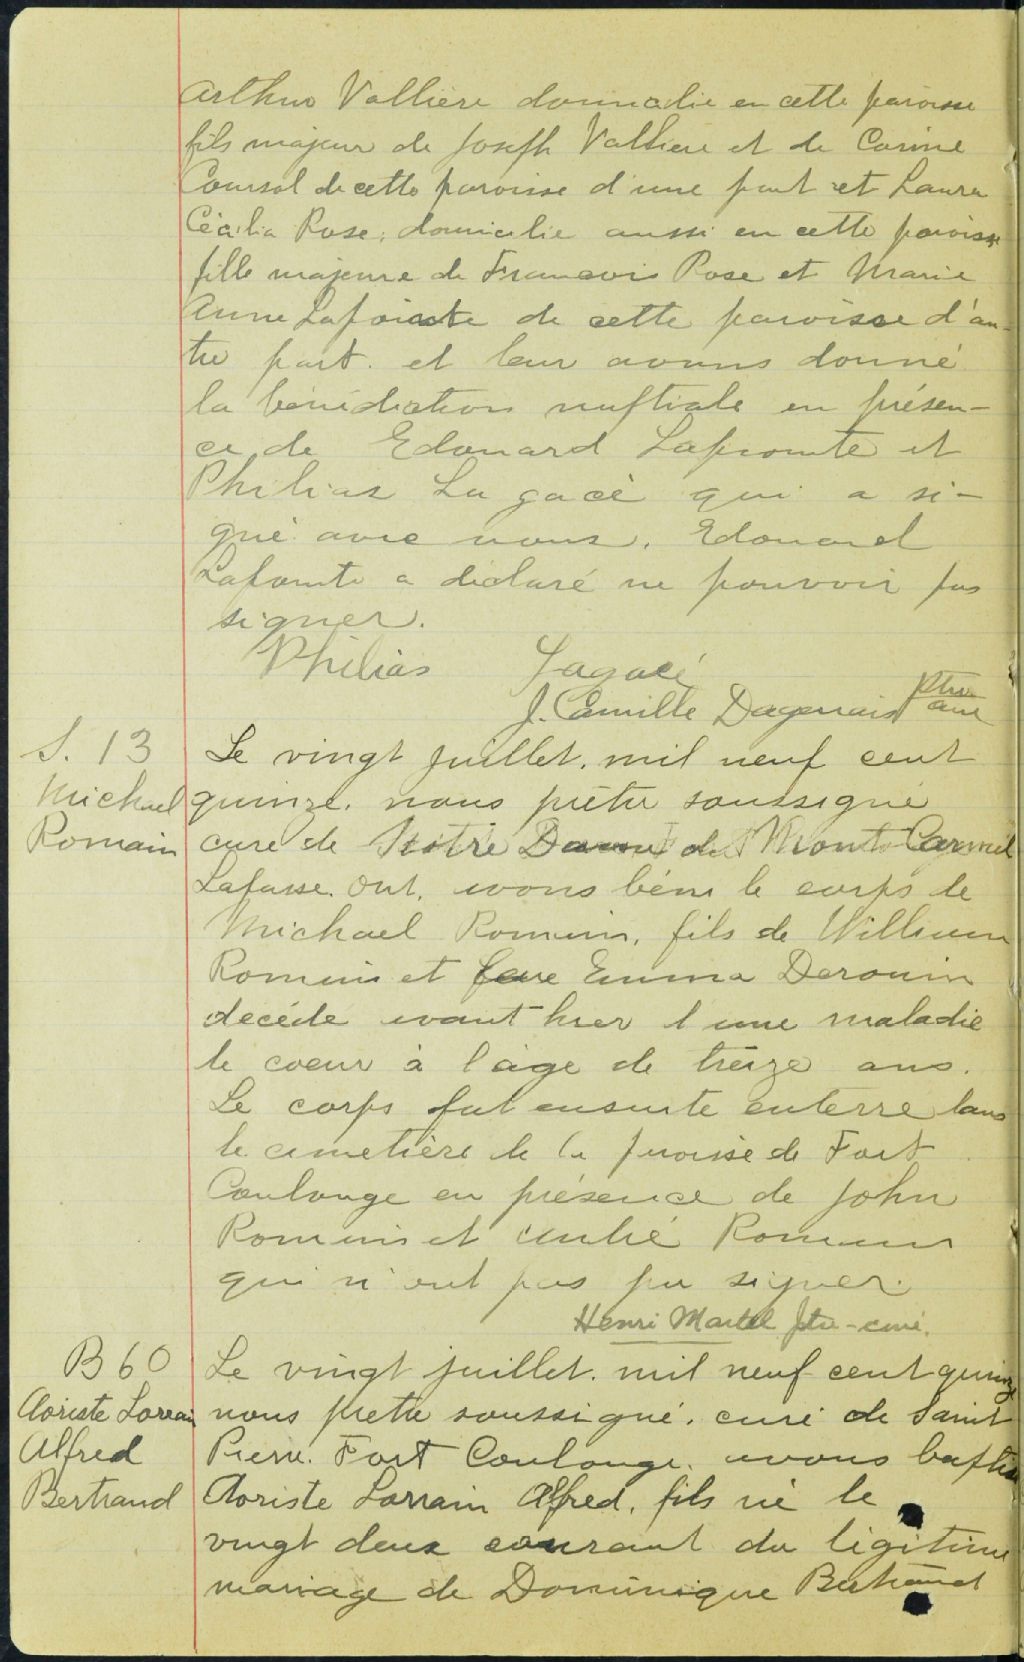 Arthur Vallière domicilié en cette paroisse
fils majeur de Joseph Vallière et de Corine
Coursol de cette paroisse d'une part et Laura
Cécilia Rose, domicilie aussi en cette paroisse
fille majeure de Francois Rose et Marie
Anne Lapointe de cette paroisse d'au-
tre part. et leur avons donné
la bénédiction nuptiale en présen-
ce de Edouard Lapointe et
Philias Lagacé qui a si-
gné avec nous. Edouard
Lapointe a déclaré ne pouvoir pas
signer.
Philias Lagacé
J. Camille Dagenais ptre
curé
S. 13
Michael
Romain
Le vingt juillet. mil neuf cent
quinze. nous prêtre soussigné
curé de Notre Dame du Mont Carmel
Lapasse. Ont. avons béni le corps de
Michael Romain, fils de William
Romain et feue Emma Derouin
decéde avant hier d'une maladie
de coeur à l'âge de treize ans.
Le corps fut ensuite enterré dans
le cimetière de la paroisse de Fort
Coulonge en présence de John
Romain et André Romain
qui n'ont pas pu signer.
Henri Martel ptre-curé.
B 60
Loriste Lorrain
Alfred
Bertrand
Le vingt juillet. mil neuf cent quinze
nous prêtre soussigné. curé de Saint
Pierre. Fort Coulonge. avons baptisé
Loriste Lorrain Alfred, fils né le
vingt deux courant du légitime
mariage de Dominique Bertrand